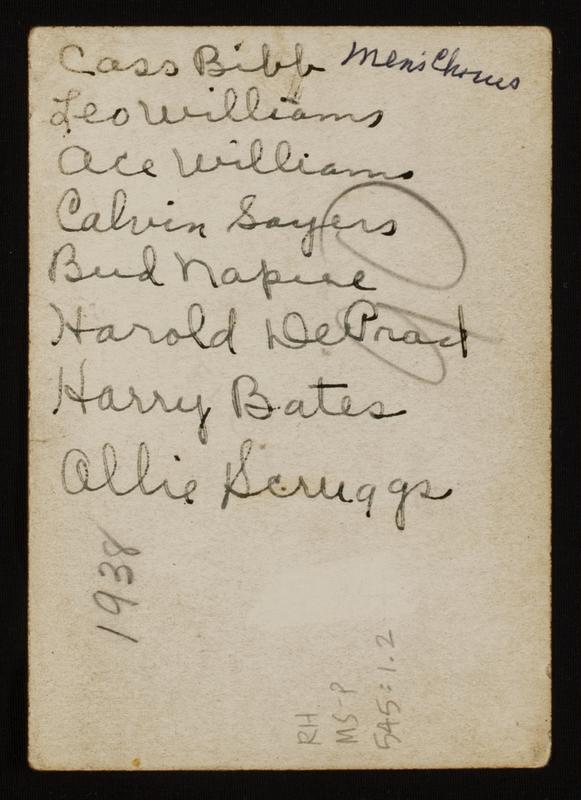 Cass Bibb Men's Chorus
Leo Williams
Ace Williams
Calvin Sayers
Bud
Harold DePrad
Harry Bates
Ollie Scruggs
1938
RH
MS-P
545:1.2